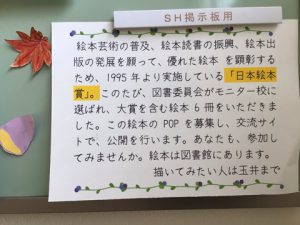 SH掲示板用
絵本芸術の普及、絵本読書の振興、絵本出
版の発展を願って、優れた絵本 を顕彰する
ため、1995 年より実施している「日本絵本
賞」。このたび、図書委員会がモニター校に
選ばれ、大賞を含む絵本 6 冊をいただきま
した。この絵本の POP を募集し、交流サイ
トで、公開を行います。あなたも、参加し
てみませんか。絵本は図書館にあります。
描いてみたい人は玉井まで